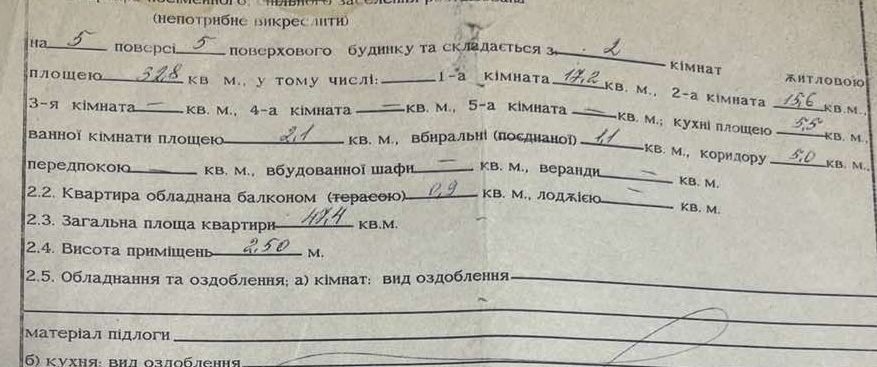 (непотрібне викреслити)
на 5 поверсі 5 поверхового будинку та складається з 2 кімнат житловою
площею 32,8 кв м., у тому числі: 1-а кімната 17,2 кв. м., 2-а кімната 15,6 кв.м.,
3-я кімната — кв. м., 4-а кімната — кв. м., 5-а кімната — кв. м.; кухні площею 5,5 кв. м.,
ванної кімнати площею 2,1 кв. м., вбиральні (поєднаної) 1,1 кв. м., коридору 5,0 кв. м.,
передпокою — кв. м., вбудованної шафи — кв. м., веранди — кв. м.
2.2. Квартира обладнана балконом (терасою) 0,9 кв. м., лоджією — кв. м.
2.3. Загальна площа квартири 47,4 кв.м.
2.4. Висота приміщень 2,50 м.
2.5. Обладнання та оздоблення; а) кімнат: вид оздоблення
матеріал підлоги
б) кухня: вид оздоблення